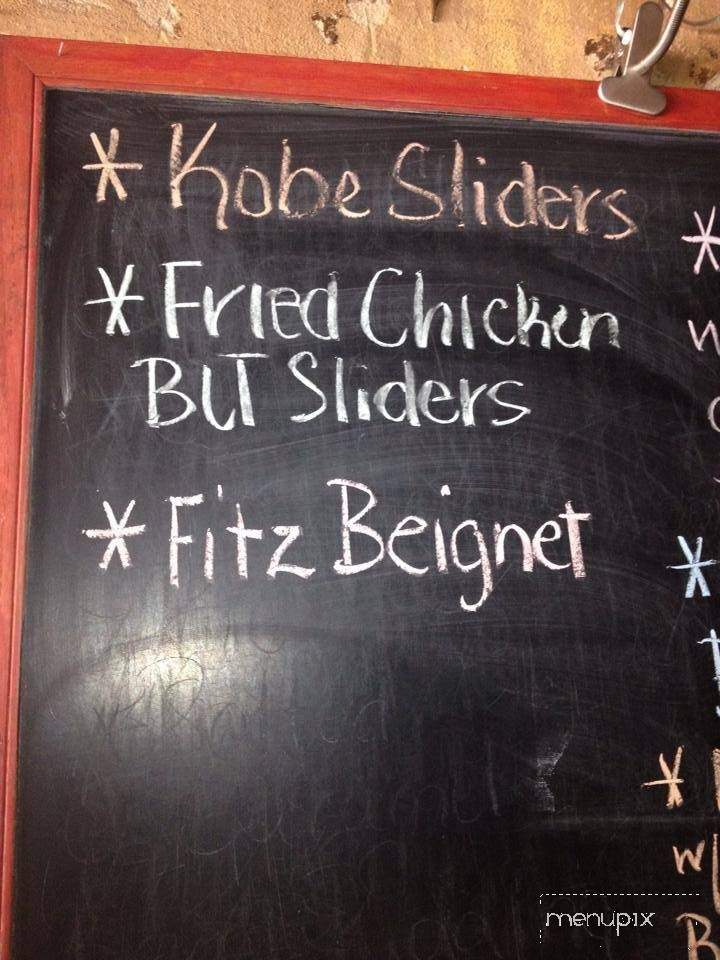 * Kobe Sliders
* Fried Chicken
BLT Sliders
* Fitz Beignet
*
w
*
*
w/
B
menupix